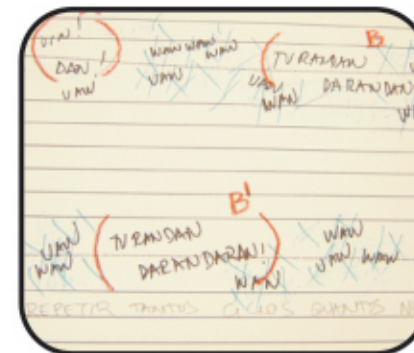 DIN!
DAN!
UAW
WAW WAW
WAW
UAW
B
TURANDAN
DARANDAN
UAW
WAW
B'
UAW
WAW
TURANDAN
DARANDARAN!
WAW
WAW
UAW WAW
REPETIR TANTOS CICLOS QUANTOS